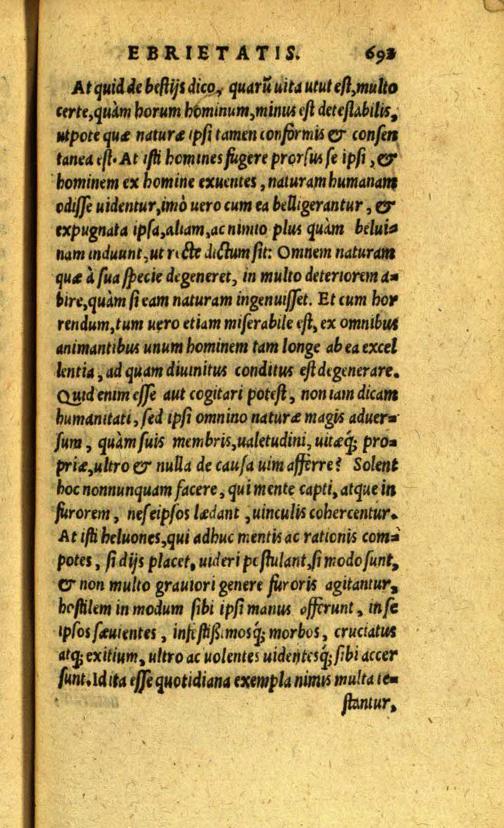 EBRIETATIS. 693
At quid de bestijs dico, quarũ uita utut est, multo
certe, quàm horum hominum, minus est detestabilis,
utpote quæ naturæ ipsi tamen conformis & consen
tanea est. At isti homines fugere prorsus se ipsi, &
hominem ex homine exuentes, naturam humanam
odisse uidentur, imò uero cum ea belligerantur, &
expugnata ipsa, aliam, ac nimio plus quàm belui-
nam induunt, ut recte dictum sit: Omnem naturam
quæ à sua specie degeneret, in multo deteriorem a-
bire, quàm si eam naturam ingenuisset. Et cum hor
rendum, tum uero etiam miserabile est, ex omnibus
animantibus unum hominem tam longe ab ea excel
lentia, ad quam diuinitus conditus est degenerare.
Quid enim esse aut cogitari potest, non iam dicam
humanitati, sed ipsi omnino naturæ magis aduer-
sum, quàm suis membris, ualetudini, uitæq; pro-
priæ, ultro & nulla de causa uim afferre? Solent
hoc nonnunquam facere, qui mente capti, atque in
furorem, ne seipsos lædant, uinculis cohercentur.
At isti heluones, qui adhuc mentis ac rationis com-
potes, si dijs placet, uideri postulant, si modo sunt,
& non multo grauiori genere furoris agitantur,
hostilem in modum sibi ipsi manus offerunt, in se
ipsos sæuientes, infestißimosq́; morbos, cruciatus
atq; exitium, ultro ac uolentes uidentesq́; sibi accer
sunt. Id ita esse quotidiana exempla nimis multa te-
stantur,